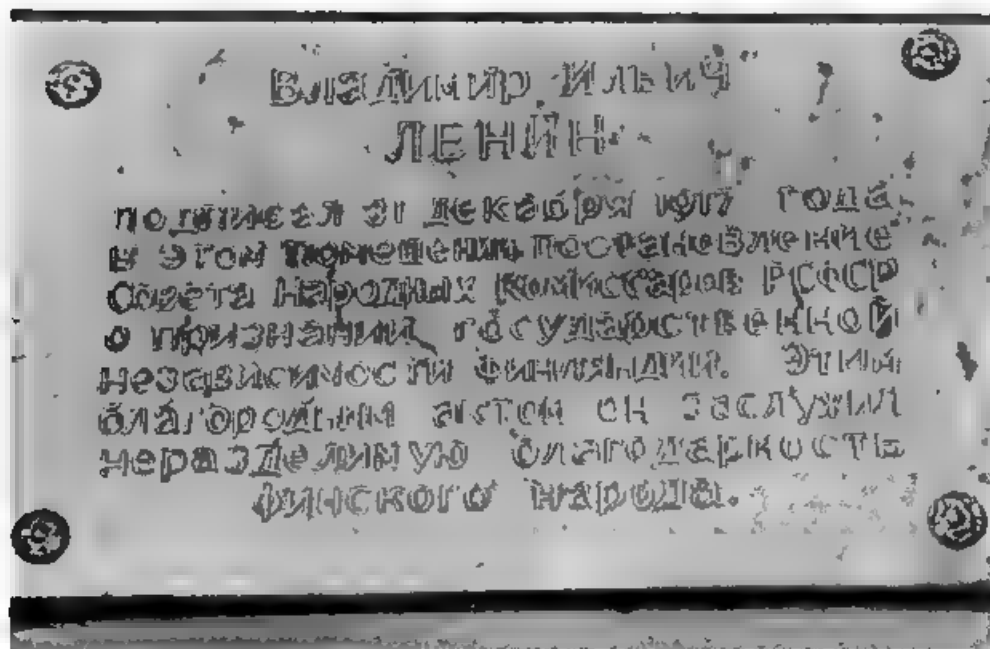 Владимир Ильич
ЛЕНИН
подписал 31 декабря 1917 года
в этом помещении постановление
Совета Народных Комиссаров РСФСР
о признании государственной
независимости Финляндии. Этим
благородным актом он заслужил
нераздельную благодарность
финского народа.